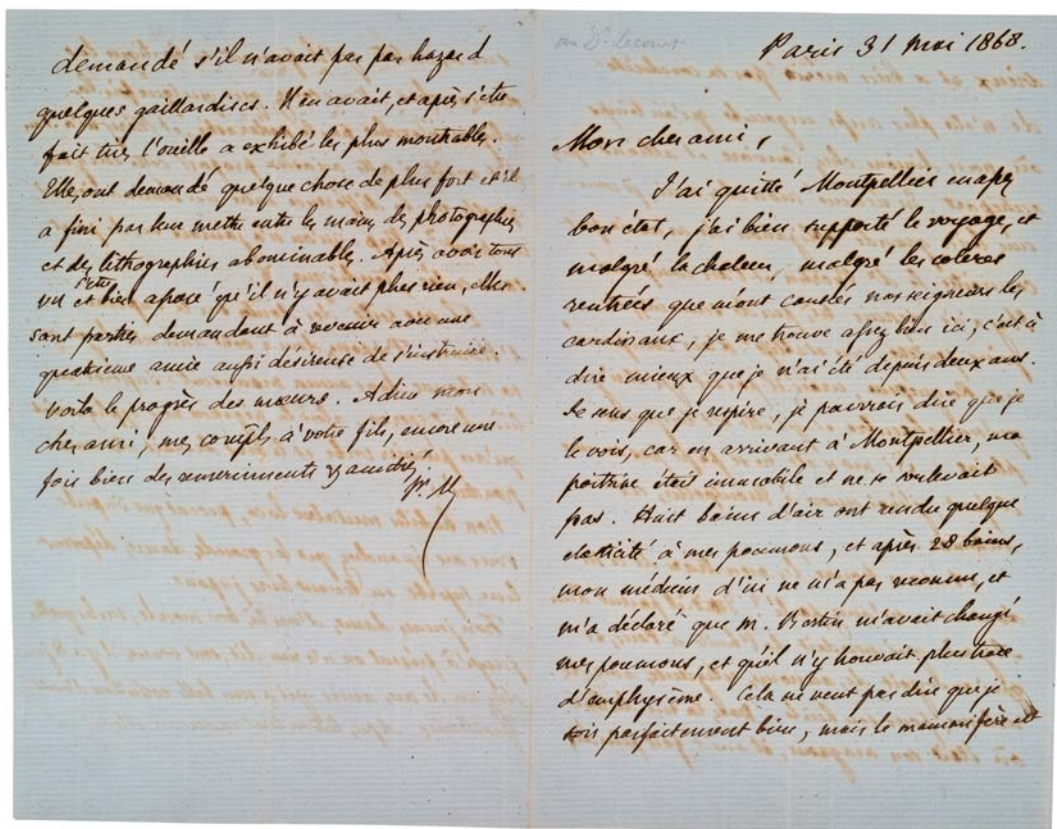 demandé s'il n'avait pas par hazard
quelques gaillardises. Il en avait, et après s'être
fait tirer l'oreille a exhibé les plus montrables.
Elles ont demandé quelque chose de plus fort et il
a fini par leur mettre entre les mains des photographies
et des lithographies abominables. Après avoir tout
vu et s'être bien assuré qu'il n'y avait plus rien, elles
sont parties demandant à revenir avec une
quatrième amie aussi désireuse de s'instruire.
Voilà le progrès des mœurs. Adieu mon
cher ami, mes compls à votre fils, encore une
fois bien des remerciments & amitiés.
Pr. M
au Dr. Lecourt
Paris 31 Mai 1868.
Mon cher ami,
J'ai quitté Montpellier en assez
bon état, j'ai bien supporté le voyage, et
malgré la chaleur, malgré les colères
rentrées que m'ont causées nosseigneurs les
cardinaux, je me trouve assez bien ici, c'est à
dire mieux que je n'ai été depuis deux ans.
Je sens que je respire, je pourrois dire que je
le vois, car en arrivant à Montpellier, ma
poitrine étoit immobile et ne se soulevait
pas. Huit bains d'air ont rendu quelque
élasticité à mes poumons, et après 28 bains,
mon médecin d'ici ne m'a pas reconnu, et
m'a déclaré que M. Bertin m'avait changé
mes poumons, et qu'il n'y trouvait plus trace
d'emphysème. Cela ne veut pas dire que je
sois parfaitement bien, mais le mammifère est